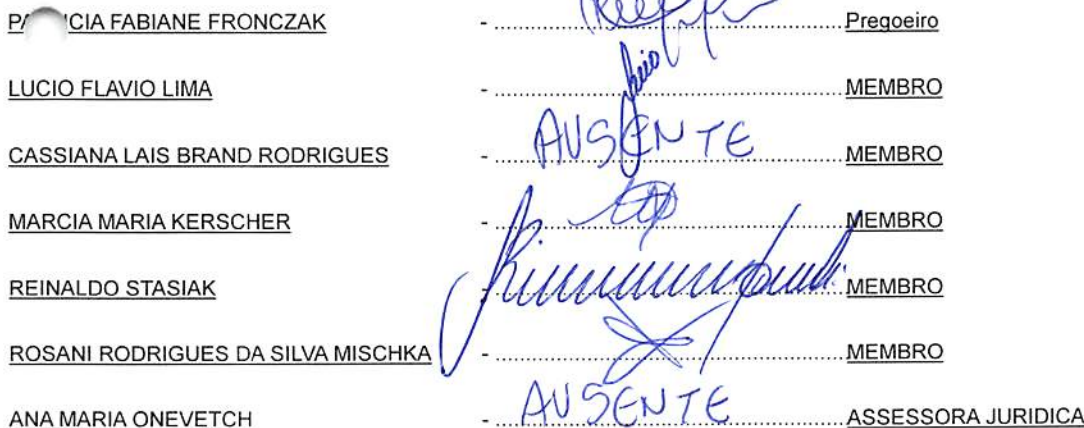 PA CIA FABIANE FRONCZAK - ........ Pregoeiro
LUCIO FLAVIO LIMA - ........ MEMBRO
CASSIANA LAIS BRAND RODRIGUES - AUSENTE ........ MEMBRO
MARCIA MARIA KERSCHER - ........ MEMBRO
REINALDO STASIAK - ........ MEMBRO
ROSANI RODRIGUES DA SILVA MISCHKA - ........ MEMBRO
ANA MARIA ONEVETCH - AUSENTE ........ ASSESSORA JURIDICA